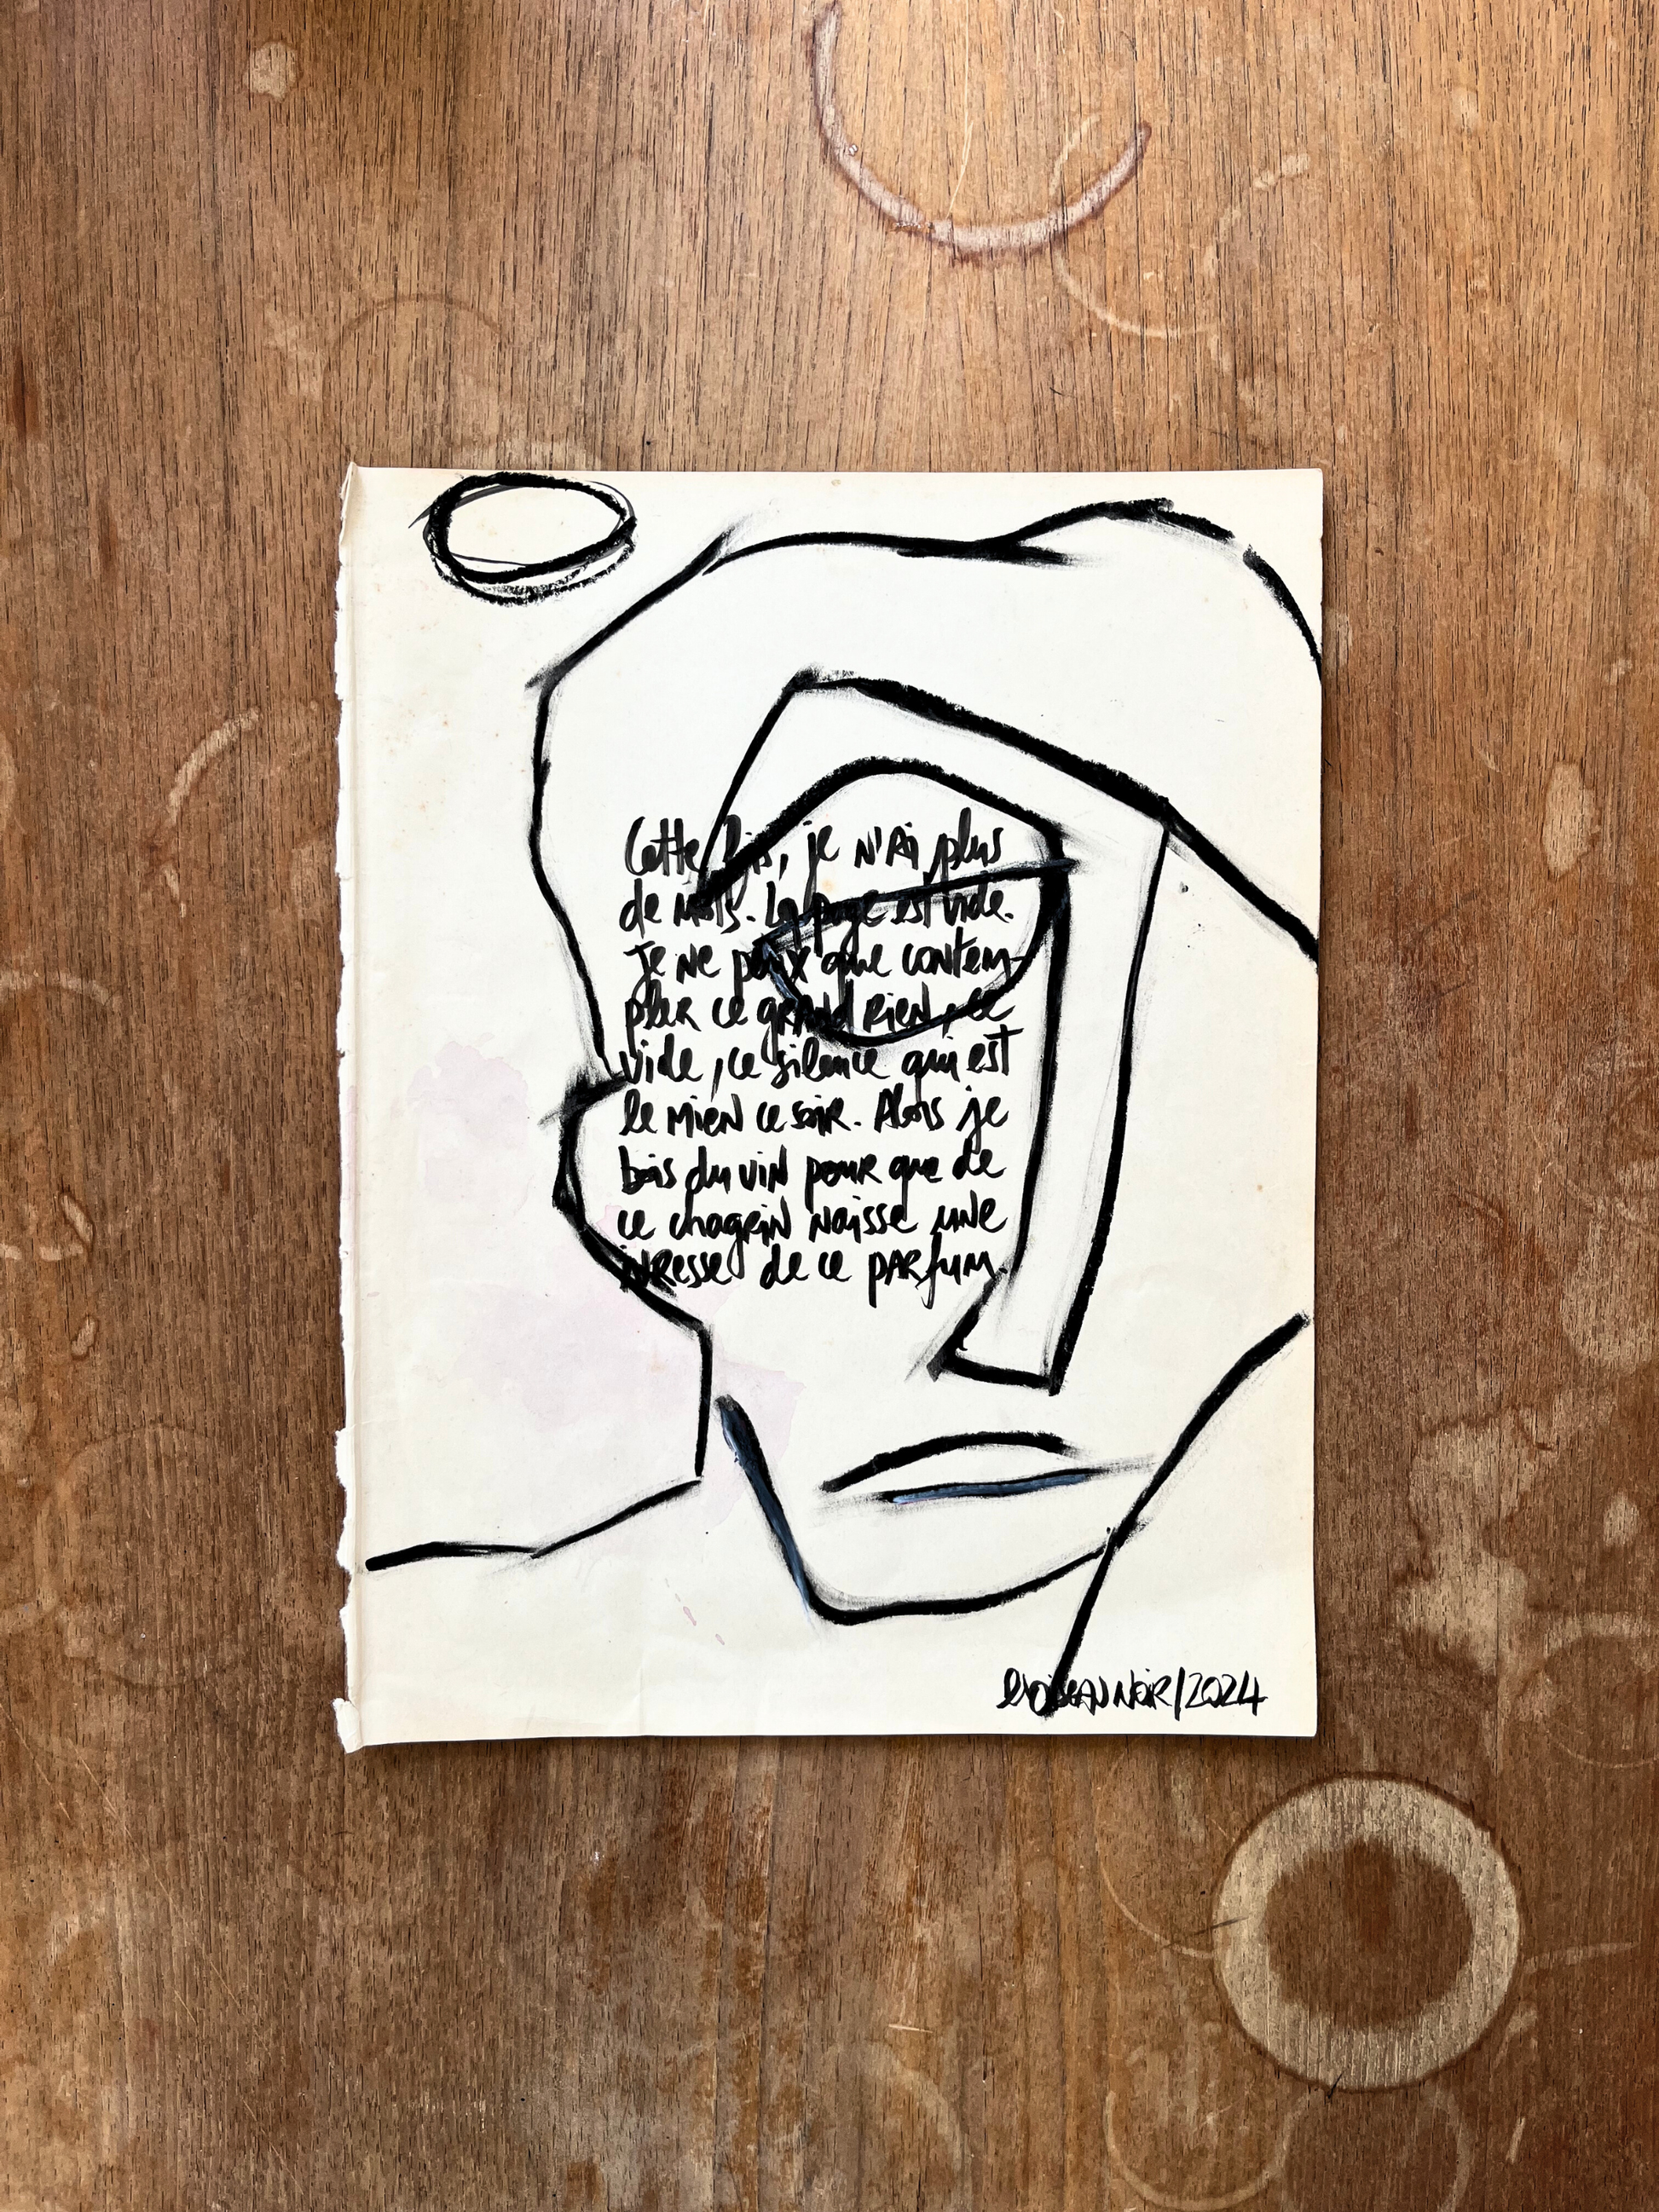 Cette fois, je n'ai plus
de mots. La page est vide.
Je ne peux que contem-
pler ce grand rien, ce
vide, ce silence qui est
le mien ce soir. Alors je
bois du vin pour que de
ce chagrin naisse une
ivresse de ce parfum.
l'oiseau noir/2024